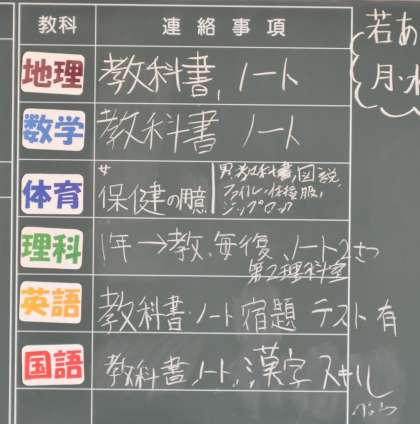 教科 連絡事項
地理 教科書、ノート
数学 教科書 ノート
体育 女 保健の
男 教科書、図説、
ファイル・体操服、
ジップロック
理科 1年→教、毎復、ノート2さつ
第2理科室
英語 教科書・ノート 宿題 テスト有
国語 教科書、ノート、漢字スキル
若あ
月・水